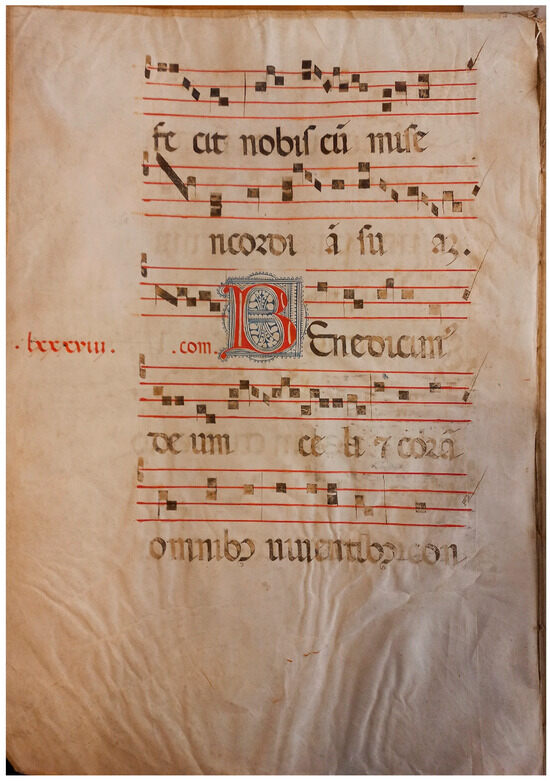 fe cit nobis cū mise
ricordi ā su aꝫ.
.lxxxviii. .com. BEnedicimꝰ
de um ce li ⁊ corā
omnibꝫ uiuentibꝫ con